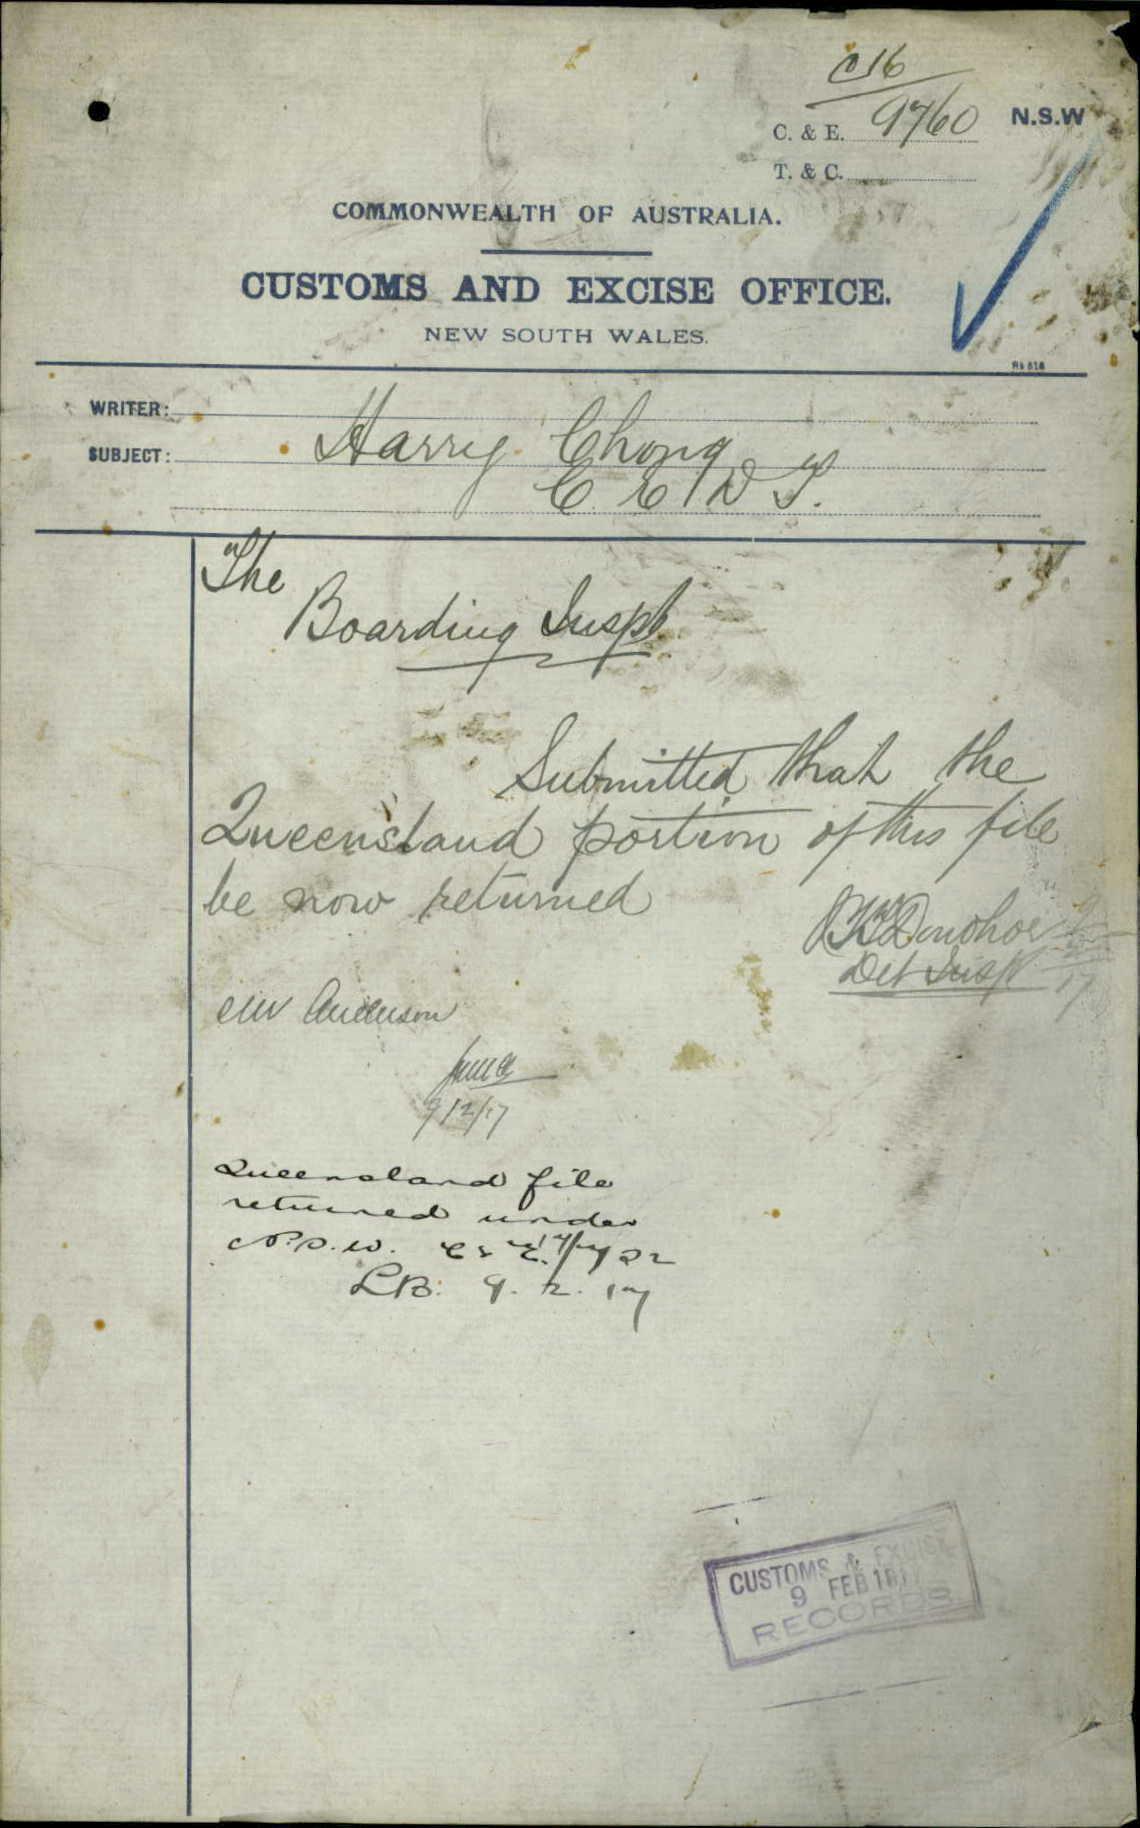 C16
C. & E. 9760 N.S.W
T. & C.
COMMONWEALTH OF AUSTRALIA.
CUSTOMS AND EXCISE OFFICE.
NEW SOUTH WALES.
WRITER:
SUBJECT: Harry Chong
C E D T.
The
Boarding Inspr
Submitted that the
Queensland portion of this file
be now returned
Donohoe
Det Insp
17
Anderson
9/2/17
Queensland file
returned under
N.S.W. C & E. 22
LB. 9. 2. 17
CUSTOMS & EXCISE
9 FEB 1917
RECORDS